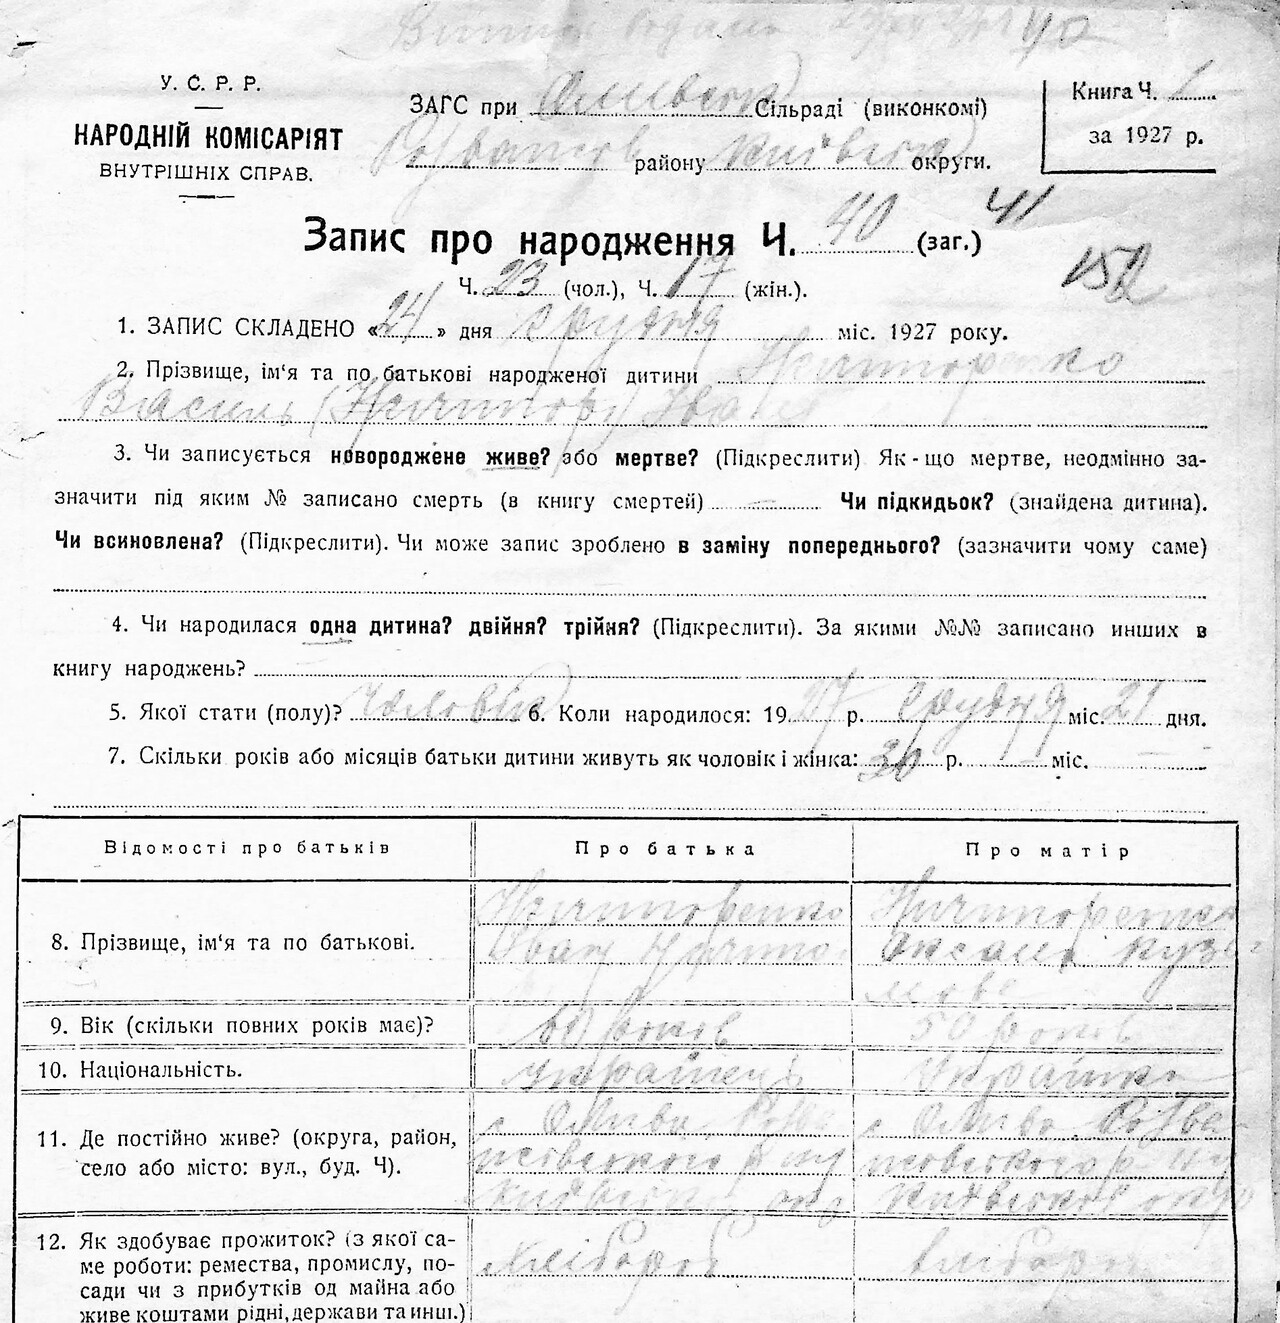 У. С. Р. Р.
НАРОДНІЙ КОМІСАРІЯТ
ВНУТРІШНІХ СПРАВ.
ЗАГС при Оливськ Сільраді (виконкомі)
району Київськ округи.
Книга Ч. 1
за 1927 р.
Запис про народження Ч. 40 (заг.) 41
152
Ч. 23 (чол.), Ч. 17 (жін.).
1. ЗАПИС СКЛАДЕНО «24» дня грудня міс. 1927 року.
2. Прізвище, ім'я та по батькові народженої дитини Ничипоренко
Василь (Ничипор) Іван
3. Чи записується новороджене живе? або мертве? (Підкреслити) Як-що мертве, неодмінно за-
значити під яким № записано смерть (в книгу смертей) — Чи підкидьок? (знайдена дитина).
Чи всиновлена? (Підкреслити). Чи може запис зроблено в заміну попереднього? (зазначити чому саме)
4. Чи народилася одна дитина? двійня? трійня? (Підкреслити). За якими №№ записано инших в
книгу народжень?
5. Якої стати (полу)? чоловік 6. Коли народилося: 1927 р. грудня міс. 21 дня.
7. Скільки років або місяців батьки дитини живуть як чоловік і жінка: 30 р. — міс. —
Відомості про батьків
Про батька
Про матір
8. Прізвище, ім'я та по батькові.
Ничипоренко
Іван Ничипо
Ничипоренко
Оксана Кузь
мова
9. Вік (скільки повних років має)?
60 років
50 років
10. Національність.
українець
Українка
11. Де постійно живе? (округа, район,
село або місто: вул., буд. Ч).
с. Олива Розва
жівського р-ну
Київськ окр
с. Олива Розва
жівського р-ну
Київської окр
12. Як здобуває прожиток? (з якої са-
ме роботи: ремества, промислу, по-
сади чи з прибутків од майна або
живе коштами рідні, держави та инш.)
хлібороб
хлібороб